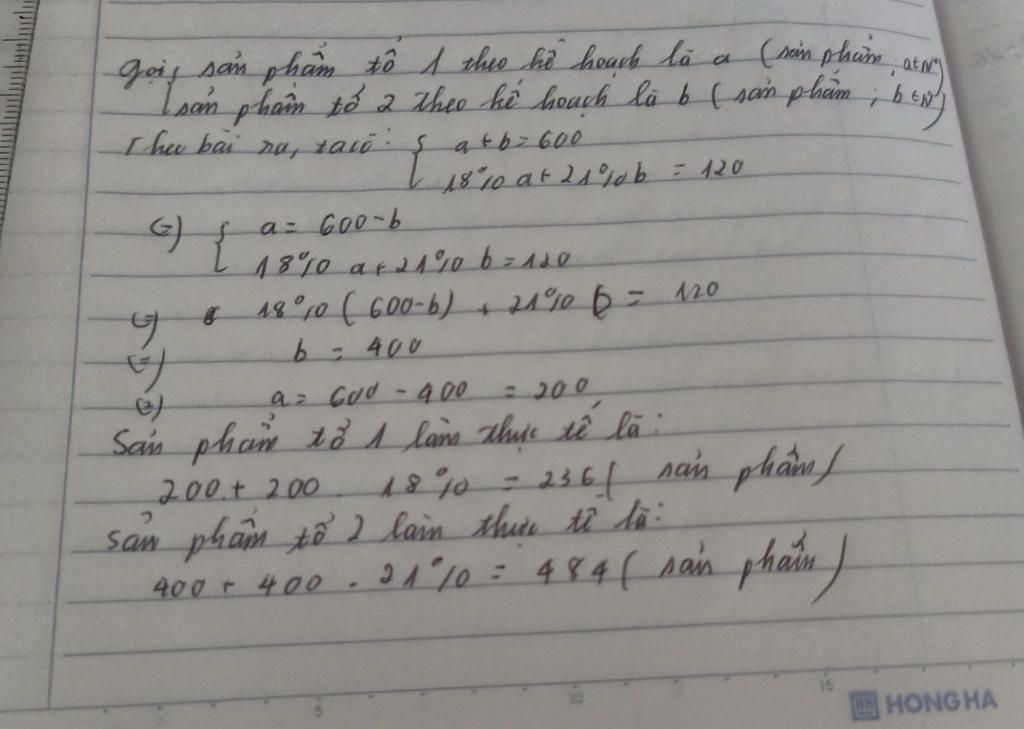 Gọi { sản phẩm tổ 1 theo kế hoạch là a ( sản phẩm ; a∈N*)
sản phẩm tổ 2 theo kế hoạch là b ( sản phẩm ; b∈N*)
Theo bài ra, ta có: { a+b=600
18% a+21%b = 120
(=) { a= 600-b
18% a+21% b=120
(=) 18% ( 600-b) + 21% b = 120
(=) b = 400
(=) a= 600 - 400 = 200
Sản phẩm tổ 1 làm thực tế là:
200 + 200 . 18% = 236 ( sản phẩm)
Sản phẩm tổ 2 làm thực tế là:
400 + 400 . 21% = 484 ( sản phẩm )
5 10 15
HH HONG HA